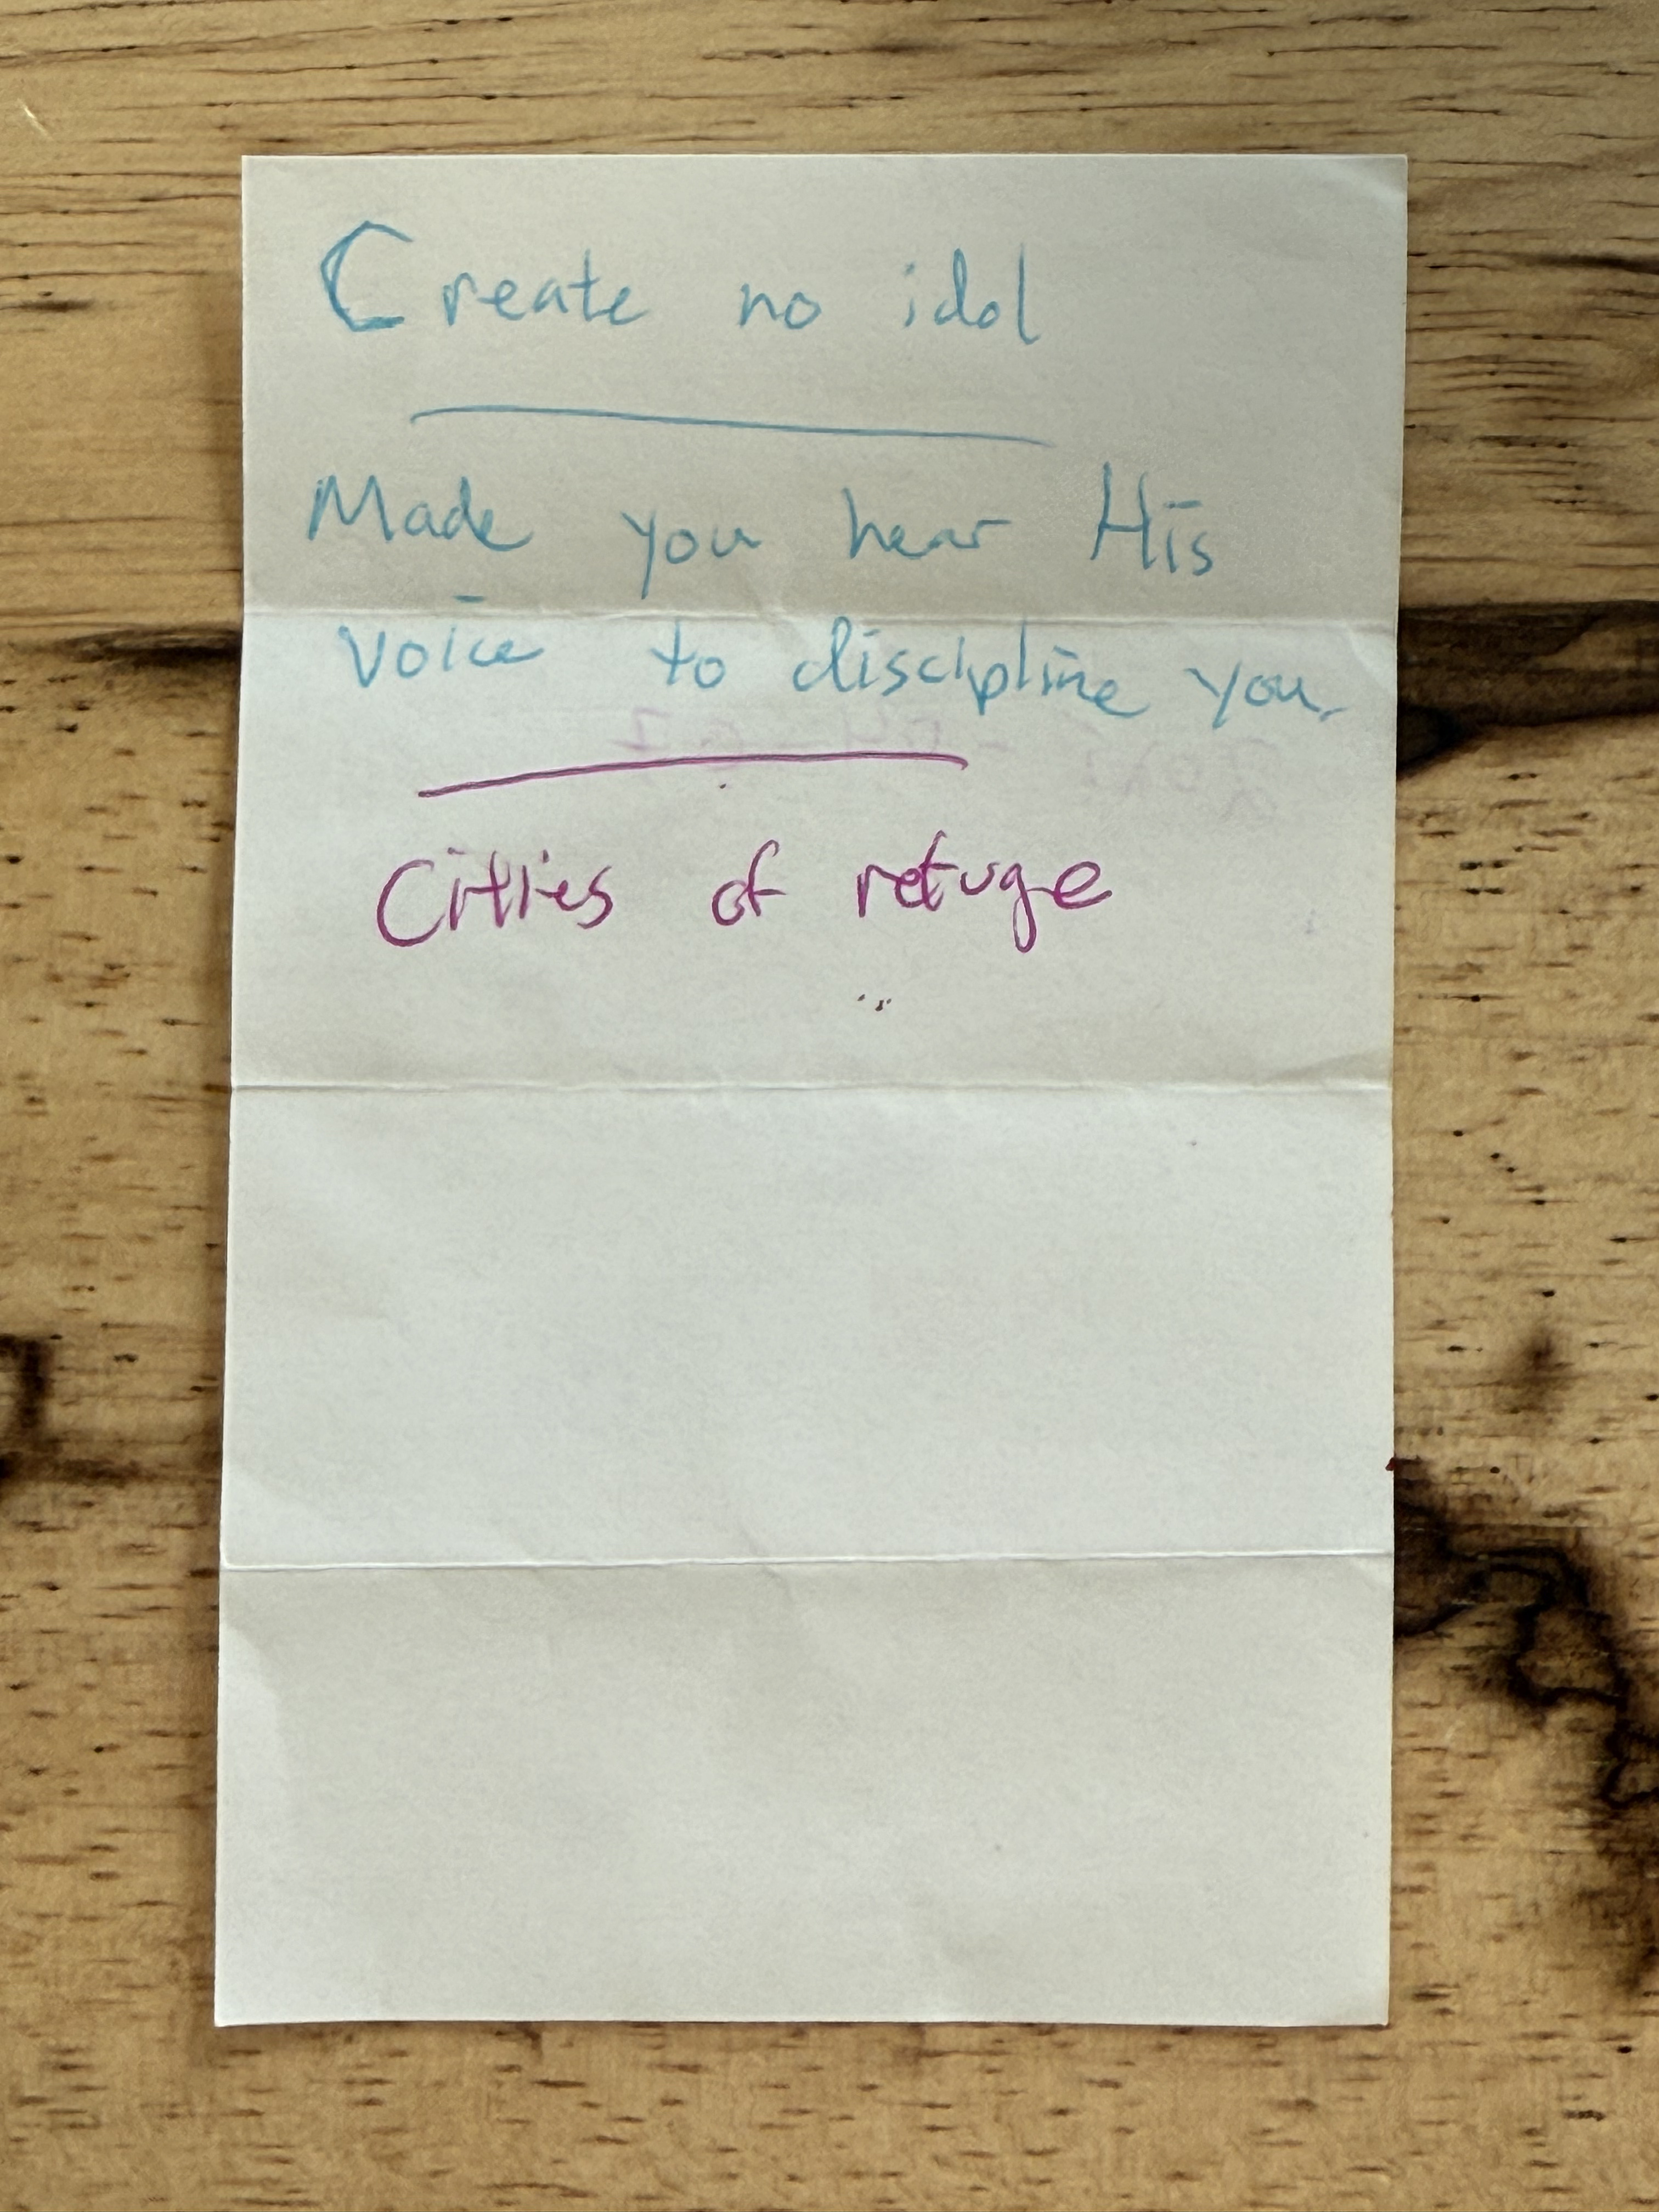 Create no idol
Made you hear His
voice to discipline you.
Cities of refuge